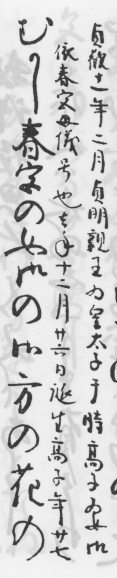 貞観十一年二月貞明親王為皇太子于時高子女御
依春宮母儀号也去年十二月廿六日誕生高子年廿七
むかし春宮の女御の御方の花の